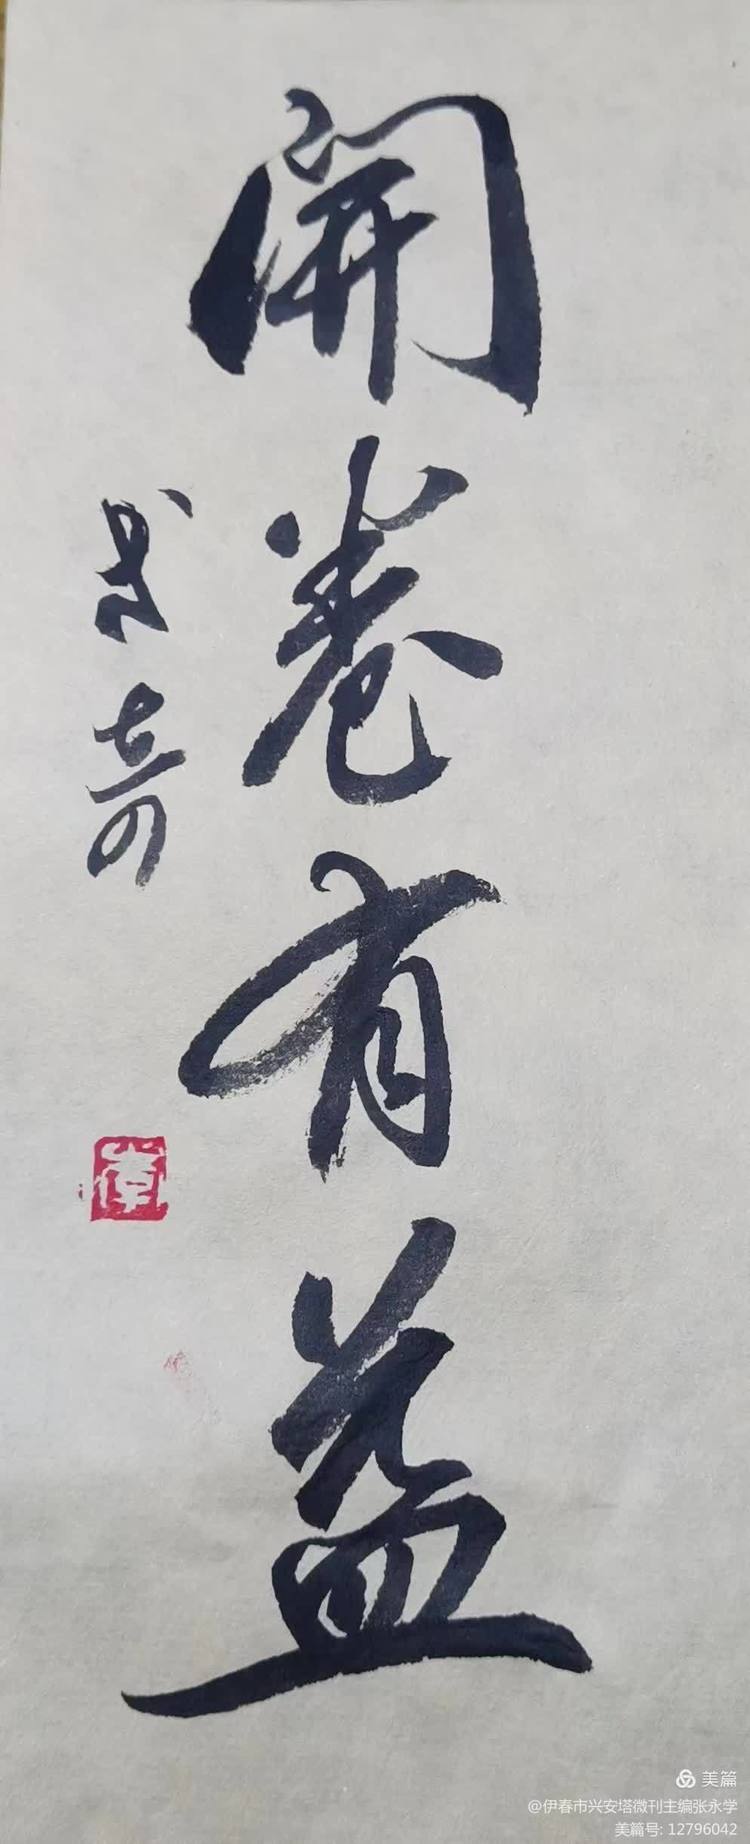 開卷有益
美篇
@伊春市兴安塔微刊主编张永学
美篇号: 12796042